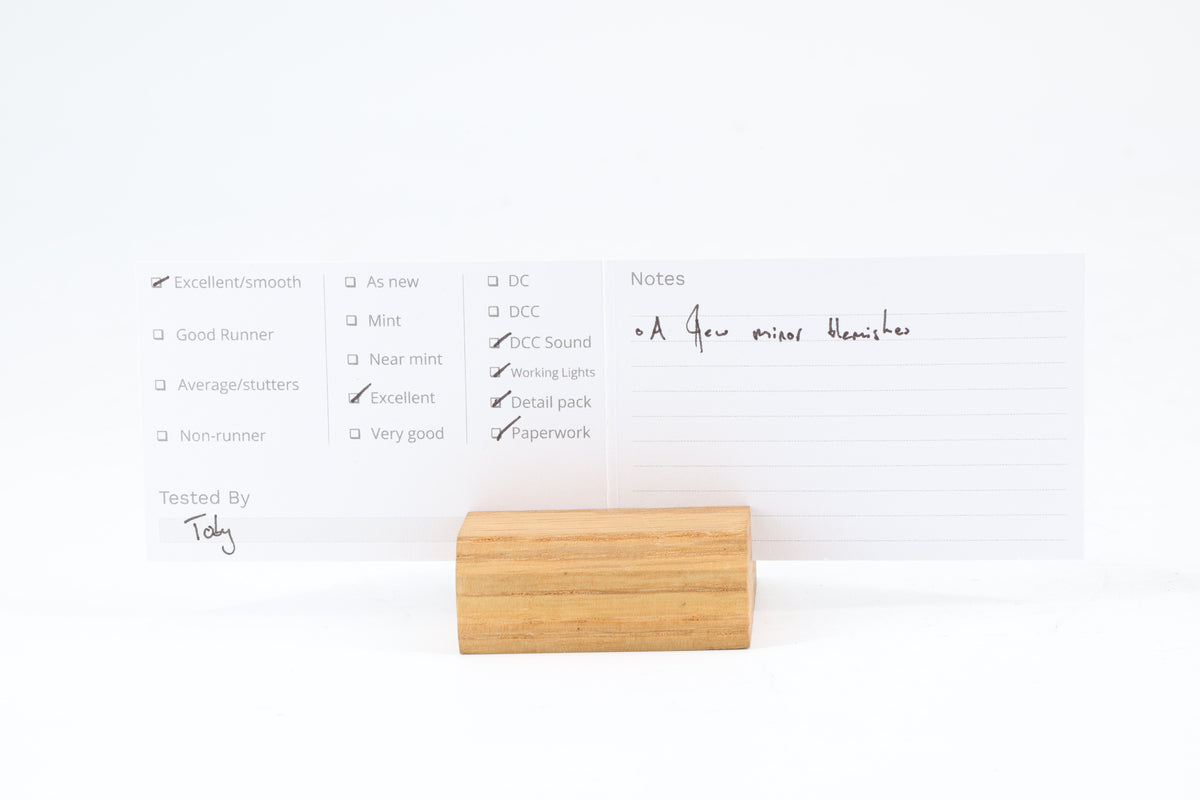 Excellent/smooth
Good Runner
Average/stutters
Non-runner
As new
Mint
Near mint
Excellent
Very good
DC
DCC
DCC Sound
Working Lights
Detail pack
Paperwork
Tested By
Toby
Notes
• A few minor blemishes